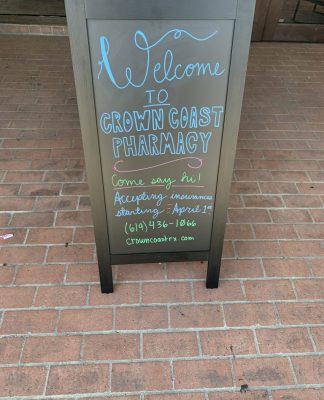 Welcome
TO
CROWN COAST
PHARMACY
Come say hi!
Accepting insurances
starting: April 1st
(619) 436-1066
crowncoastrx.com